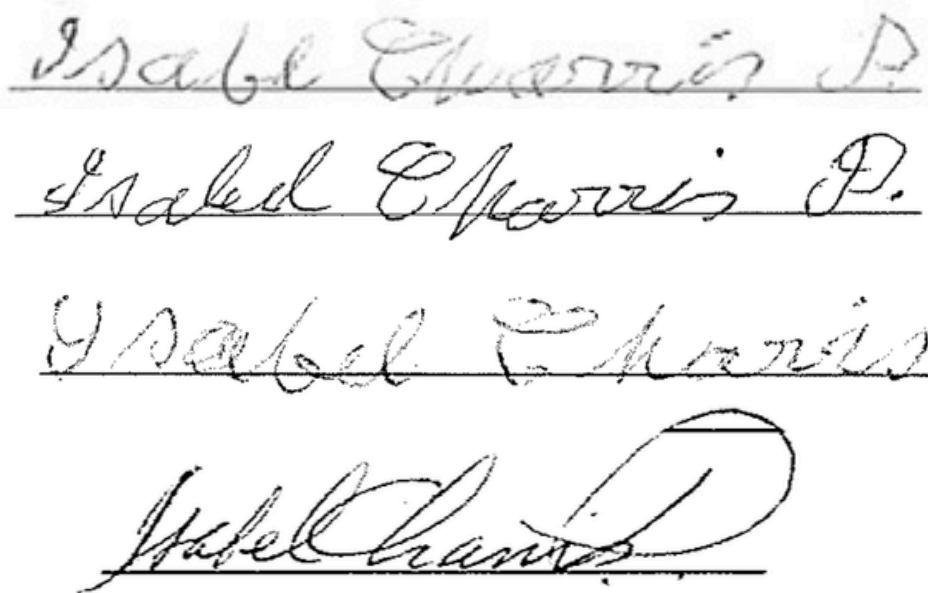 Isabel Charris P.
Isabel Charris P.
Ysabel Charris
Isabel Charris P.